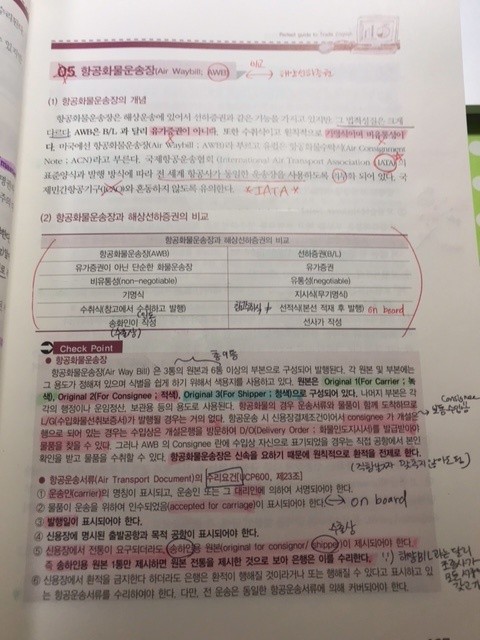 Perfect guide to Trade English
05 항공화물운송장(Air Waybill; AWB) 비교 해상선하증권
(1) 항공화물운송장의 개념
항공화물운송장은 해상운송에 있어서 선하증권과 같은 기능을 가지고 있지만, 그 법적성질은 크게
다르다. AWB은 B/L 과 달리 유가증권이 아니라, 또한 수취식이고 원칙적으로 기명식이며 비유통성이
다. 미국에선 항공화물운송장(Air Waybill ; AWB)라 부르고 유럽은 항공화물수탁서(Air Consignment
Note ; ACN)라고 부른다. 국제항공운송협회 (International Air Transport Association, IATA)의
표준양식과 발행 방식에 따라 전 세계 항공사가 동일한 운송장을 사용하도록 하 되어 있다. 국
제민간항공기구(ICAO)와 혼동하지 않도록 유의한다. *IATA*
(2) 항공화물운송장과 해상선하증권의 비교
항공화물운송장과 해상선하증권의 비교
항공화물운송장(AWB) 선하증권(B/L)
유가증권이 아닌 단순한 화물운송장 유가증권
비유통성(non-negotiable) 유통성(negotiable)
기명식 지시식(무기명식)
수취식(창고에서 수취하고 발행) 선적식(본선 적재 후 발행) on board
송화인이 작성 선사가 작성
(수출상)
Check Point
총 9통
● 항공화물운송장
항공화물운송장(Air Way Bill) 은 3통의 원본과 6통 이상의 부본으로 구성되어 발행된다. 각 원본 및 부본에는
그 용도가 정해져 있으며 식별을 쉽게 하기 위해서 색용지를 사용하고 있다. 원본은 Original 1(For Carrier ; 녹
색), Original 2(For Consignee ; 적색), Original 3(For Shipper ; 청색)으로 구성되어 있다. 나머지 부본은 각
각의 행정이나 운임정산, 보관용 등의 용도로 사용된다. 항공화물의 경우 운송서류와 물품이 함께 도착하므로
L/G(수입화물선취보증서)가 발행될 경우는 거의 없다. 항공운송 시 신용장결제조건이어서 consignee 가 개설은
행으로 되어 있는 경우는 수입상은 개설은행을 방문하여 D/O(Delivery Order ; 화물인도지시서)를 발급받아야
물품을 찾을 수 있다. 그러나 AWB 의 Consignee 란에 수입상 자신으로 표기되었을 경우는 직접 공항에서 본인
확인을 받고 물품을 수취할 수 있다. 항공화물운송장은 신속을 요하기 때문에 원칙적으로 환적을 전제로 한다.
consignee
● 항공운송서류(Air Transport Document)의 수리요건(UCP600, 제23조)
① 운송인(carrier)의 명칭이 표시되고, 운송인 또는 그 대리인에 의하여 서명되어야 한다.
② 물품이 운송을 위하여 인수되었음(accepted for carriage)이 표시되어야 한다. on board
③ 발행일이 표시되어야 한다.
④ 신용장에 명시된 출발공항과 목적 공항이 표시되어야 한다. 수출상
⑤ 신용장에서 전통이 요구되더라도 송하인용 원본(original for consignor/ shipper)이 제시되어야 한다.
즉 송하인용 원본 1통만 제시하면 원본 전통을 제시한 것으로 보아 은행은 이를 수리한다.
⑥ 신용장에서 환적을 금지한다 하더라도 은행은 환적이 행해질 것이라거나 또는 행해질 수 있다고 표시하고 있
는 항공운송서류를 수리하여야 한다. 다만, 전 운송은 동일한 항공운송서류에 의해 커버되어야 한다.